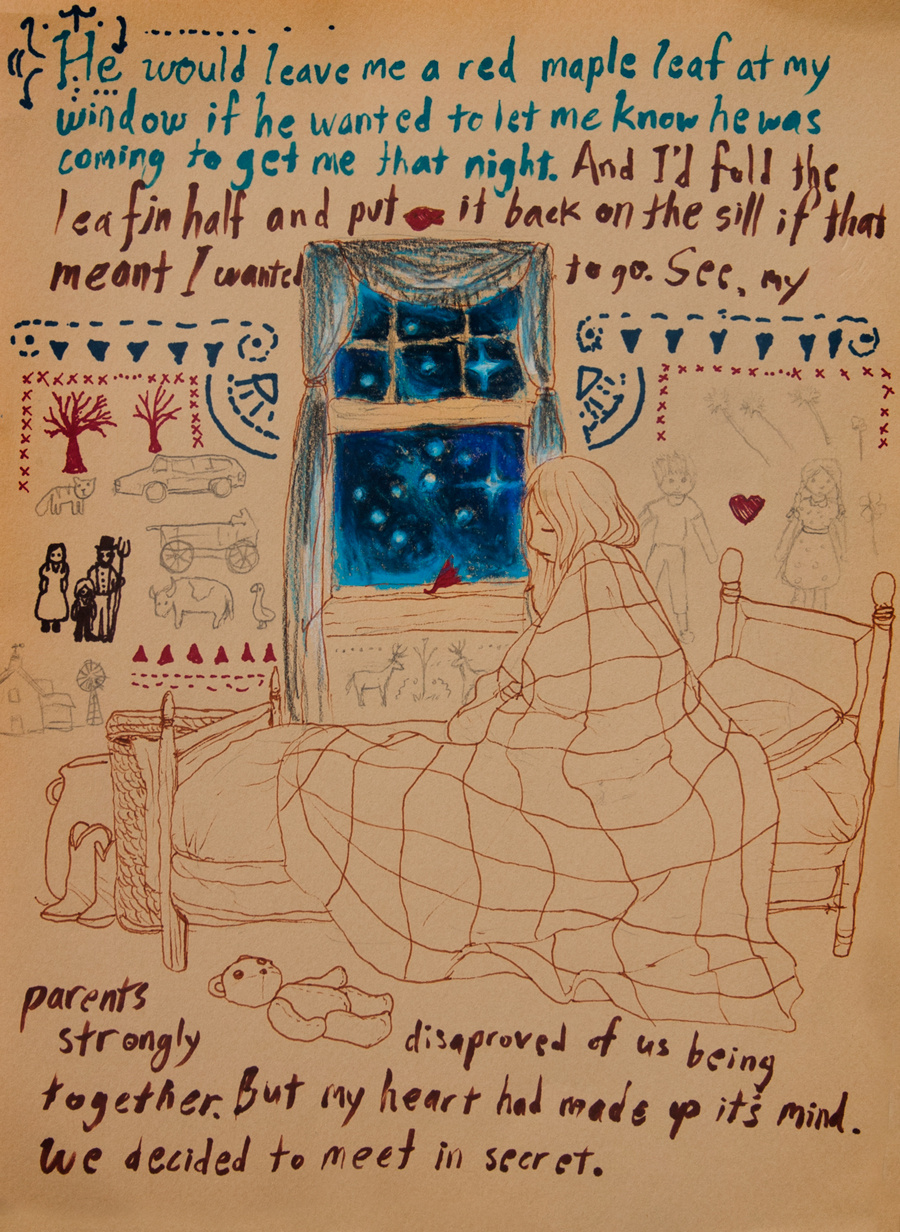 He would leave me a red maple leaf at my
window if he wanted to let me know he was
coming to get me that night. And I'd fold the
leaf in half and put it back on the sill if that
meant I wanted to go. See, my
parents
strongly disaproved of us being
together. But my heart had made up it's mind.
We decided to meet in secret.